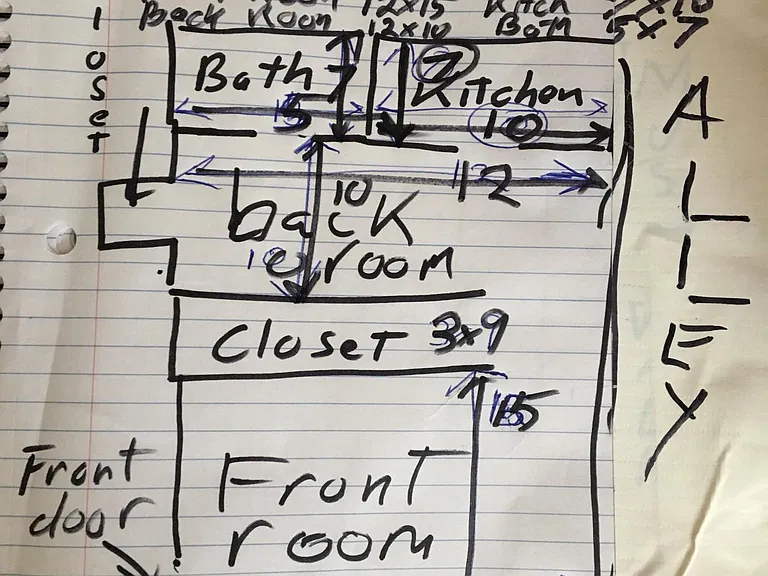 Back Room 12x10 Bath 5x7
Closet
Bath 7 7
Kitchen
5 10
12
10
back
10 room
Closet 3x9
15
Front
door
Front
room
ALLEY